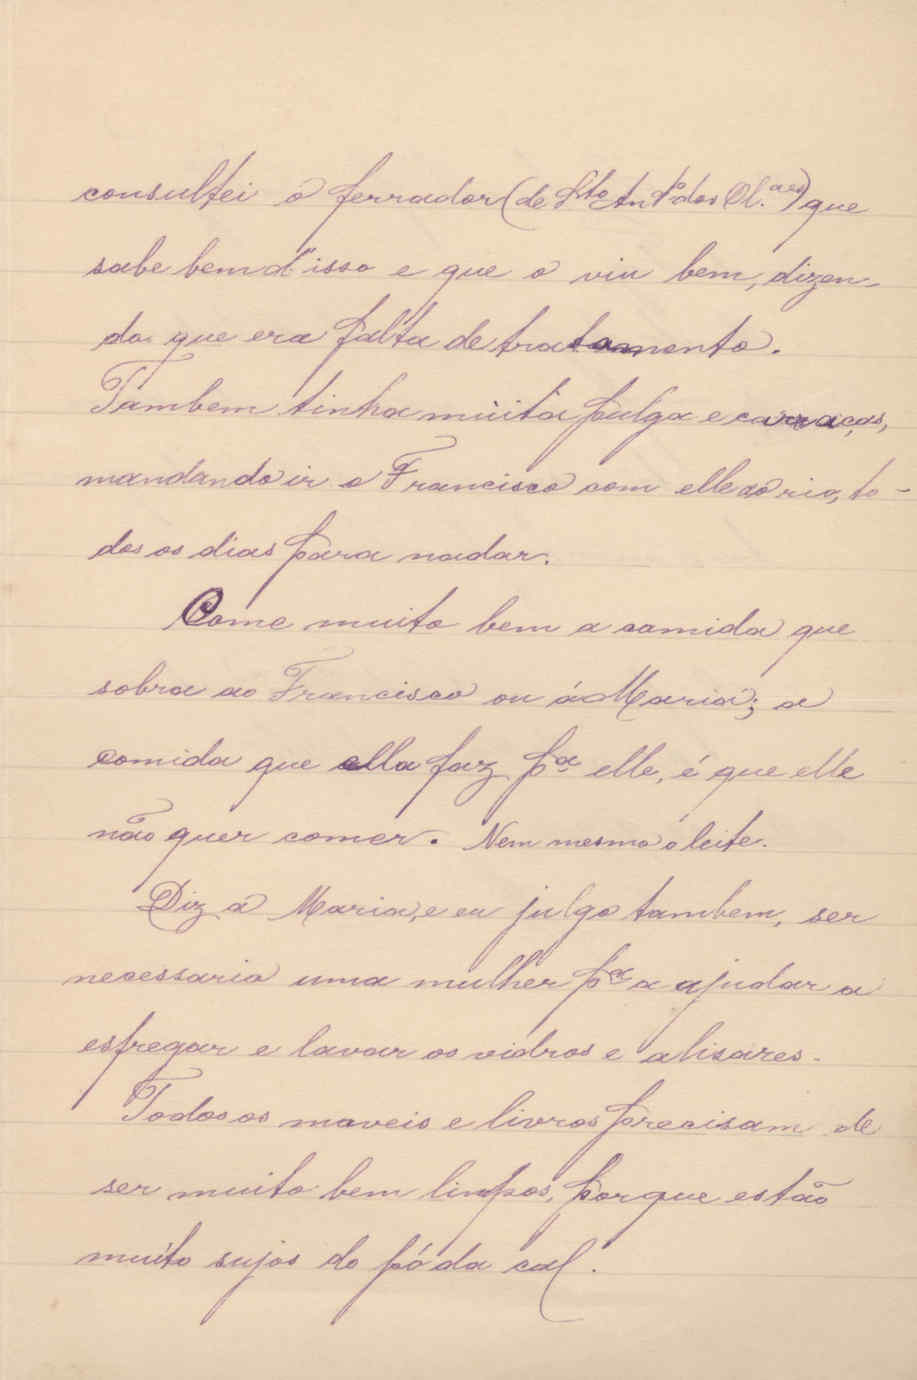 consultei o ferrador (de Sto Antº dos Ol.aes) que
sabe bem d'isso e que o viu bem, dizen-
do que era falta de tratamento.
Tambem tinha muita pulga e carraças,
mandando ir o Francisco com elle ao rio, to-
dos os dias para nadar.
Come muito bem a comida que
sobra ao Francisco ou á Maria; a
comida que ella faz pª elle, é que elle
não quer comer. Nem mesmo o leite.
Diz a Maria, e eu julgo tambem, ser
necessario uma mulher pª a ajudar a
esfregar e lavar os vidros e alisares.
Todos os moveis e livros precisam de
ser muito bem limpos, porque estão
muito sujos do pó da cal.